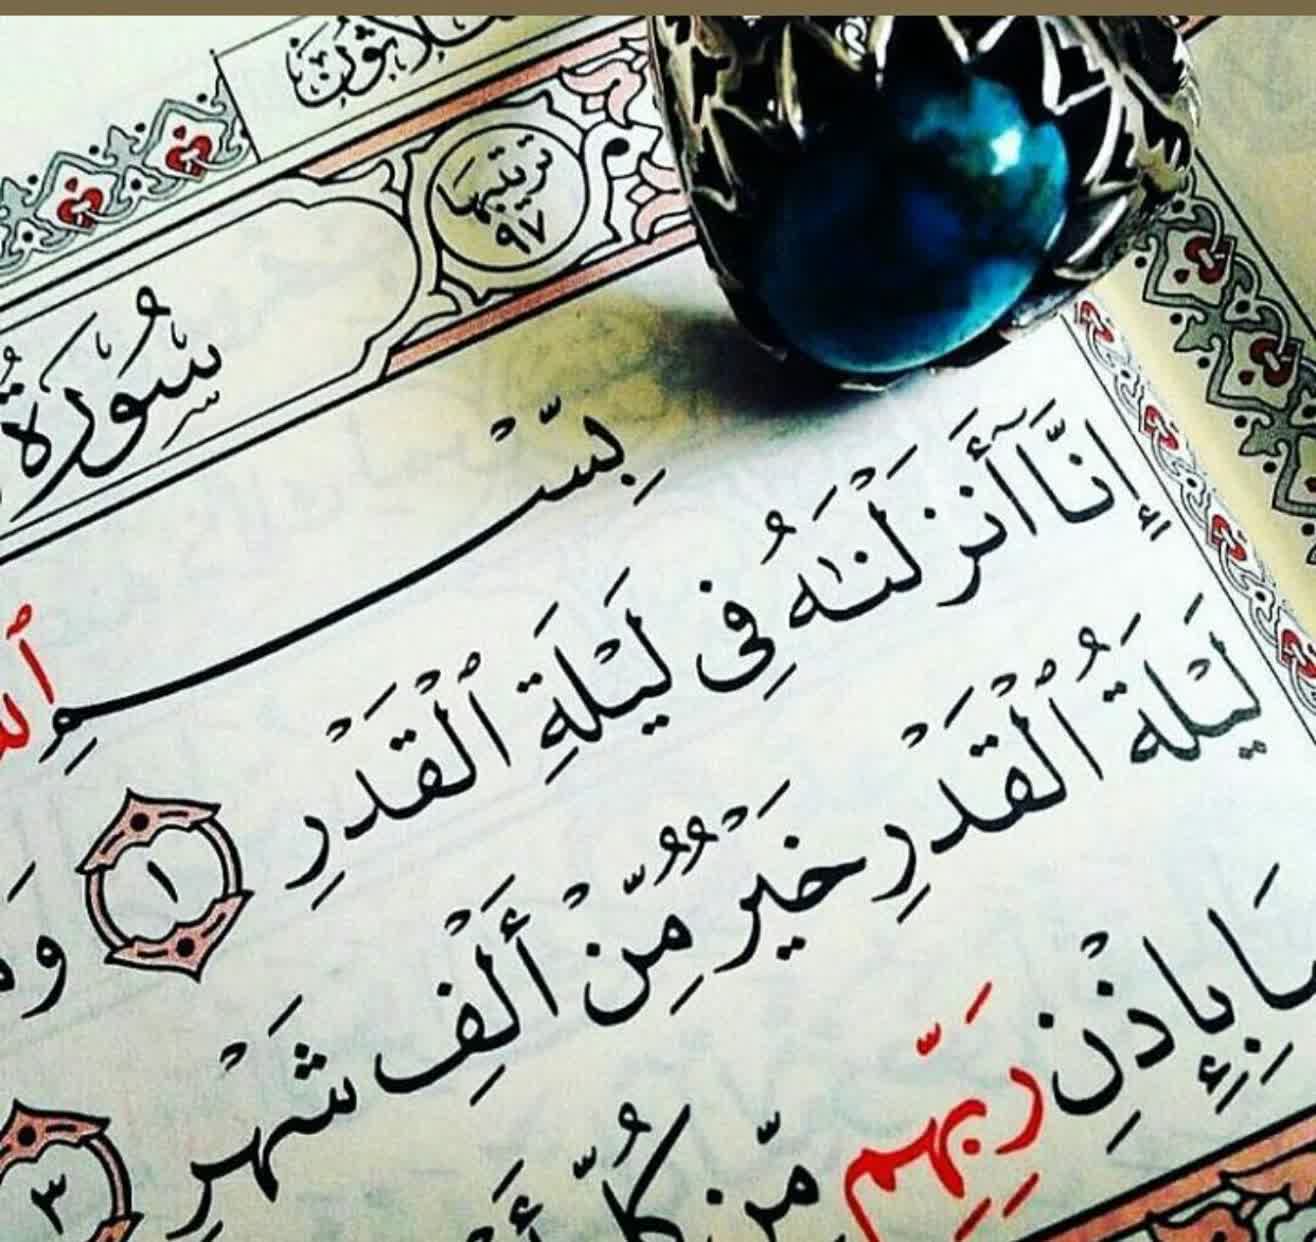 ترتيبها
٩٧
سُورَةُ
بِسْمِ
إِنَّآ أَنزَلْنَٰهُ فِى لَيْلَةِ ٱلْقَدْرِ ١
لَيْلَةُ ٱلْقَدْرِ خَيْرٌ مِّنْ أَلْفِ شَهْرٍ ٣
بِإِذْنِ رَبِّهِم مِّن كُلِّ